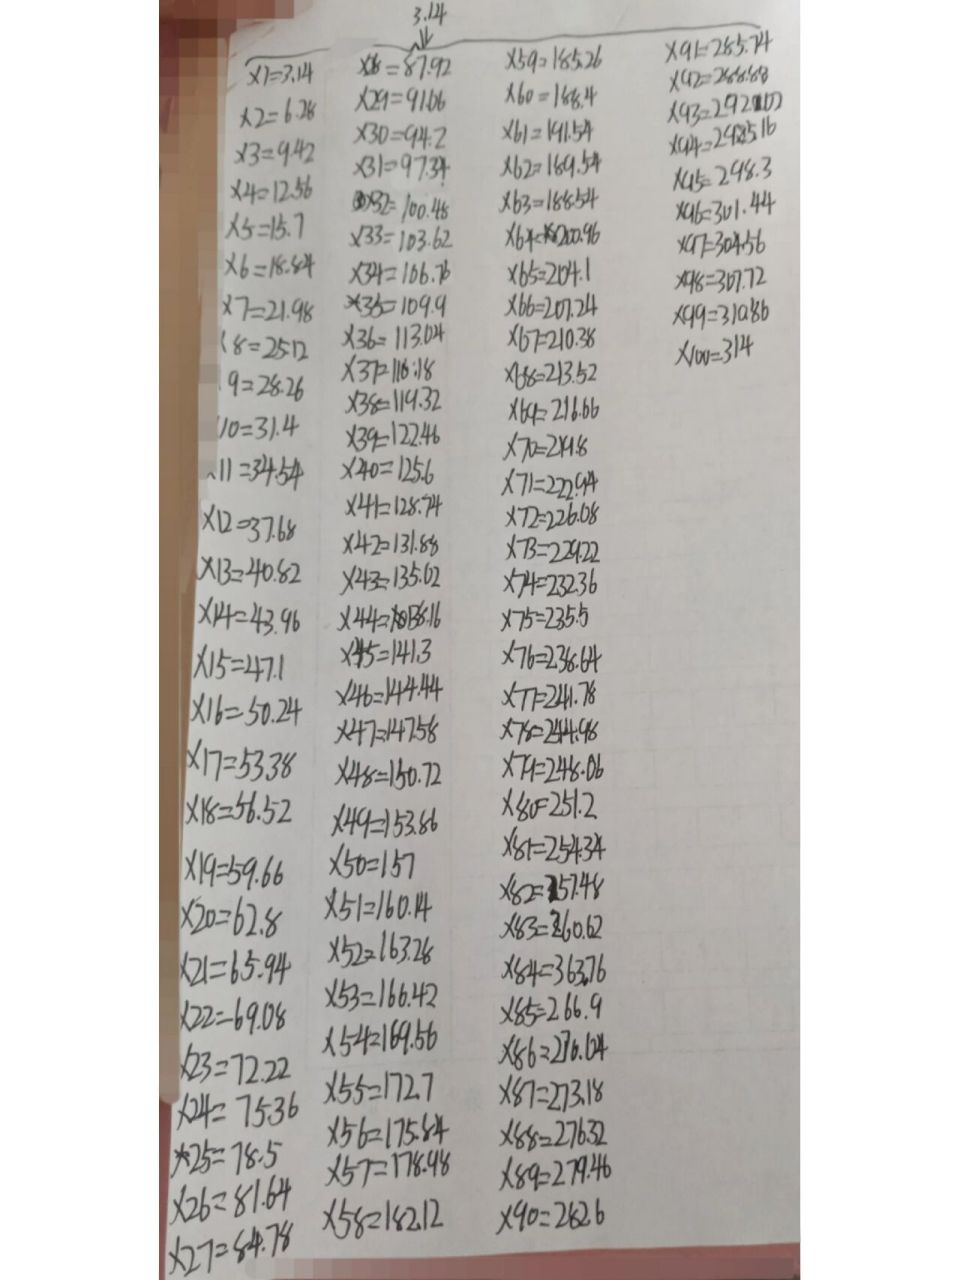 3.14
x1=3.14
x2=6.28
x3=9.42
x4=12.56
x5=15.7
x6=18.84
x7=21.98
x8=25.12
9=28.26
10=31.4
x11=34.54
x12=37.68
x13=40.82
x14=43.96
x15=47.1
x16=50.24
x17=53.38
x18=56.52
x19=59.66
x20=62.8
x21=65.94
x22=69.08
x23=72.22
x24=75.36
x25=78.5
x26=81.64
x27=84.78
x28=87.92
x29=91.06
x30=94.2
x31=97.34
x32=100.48
x33=103.62
x34=106.76
x35=109.9
x36=113.04
x37=116.18
x38=119.32
x39=122.46
x40=125.6
x41=128.74
x42=131.88
x43=135.02
x44=138.16
x45=141.3
x46=144.44
x47=147.58
x48=150.72
x49=153.86
x50=157
x51=160.14
x52=163.28
x53=166.42
x54=169.56
x55=172.7
x56=175.84
x57=178.98
x58=182.12
x59=185.26
x60=188.4
x61=191.54
x62=189.54
x63=188.54
x64=200.96
x65=204.1
x66=207.24
x67=210.38
x68=213.52
x69=216.66
x70=219.8
x71=222.94
x72=226.08
x73=229.22
x74=232.36
x75=235.5
x76=238.64
x77=241.78
x78=244.98
x79=248.06
x80=251.2
x81=254.34
x82=257.48
x83=260.62
x84=363.76
x85=266.9
x86=270.04
x87=273.18
x88=276.32
x89=279.46
x90=282.6
x91=285.74
x92=288.88
x93=292.02
x94=295.16
x95=298.3
x96=301.44
x97=304.56
x98=307.72
x99=310.86
x100=314